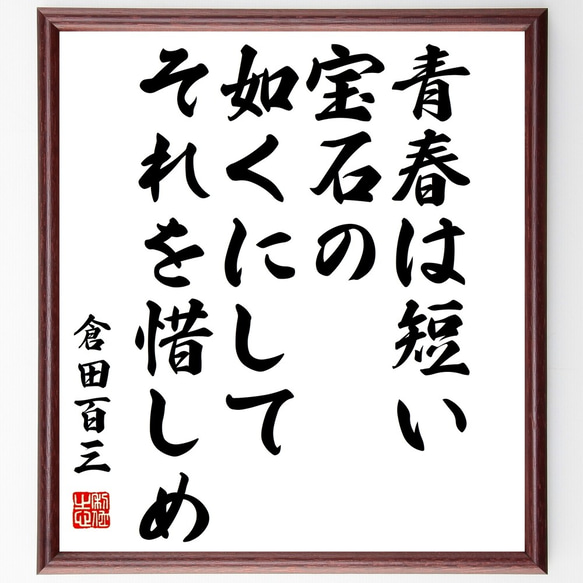 青春は短い
宝石の
如くにして
それを惜しめ
倉田百三